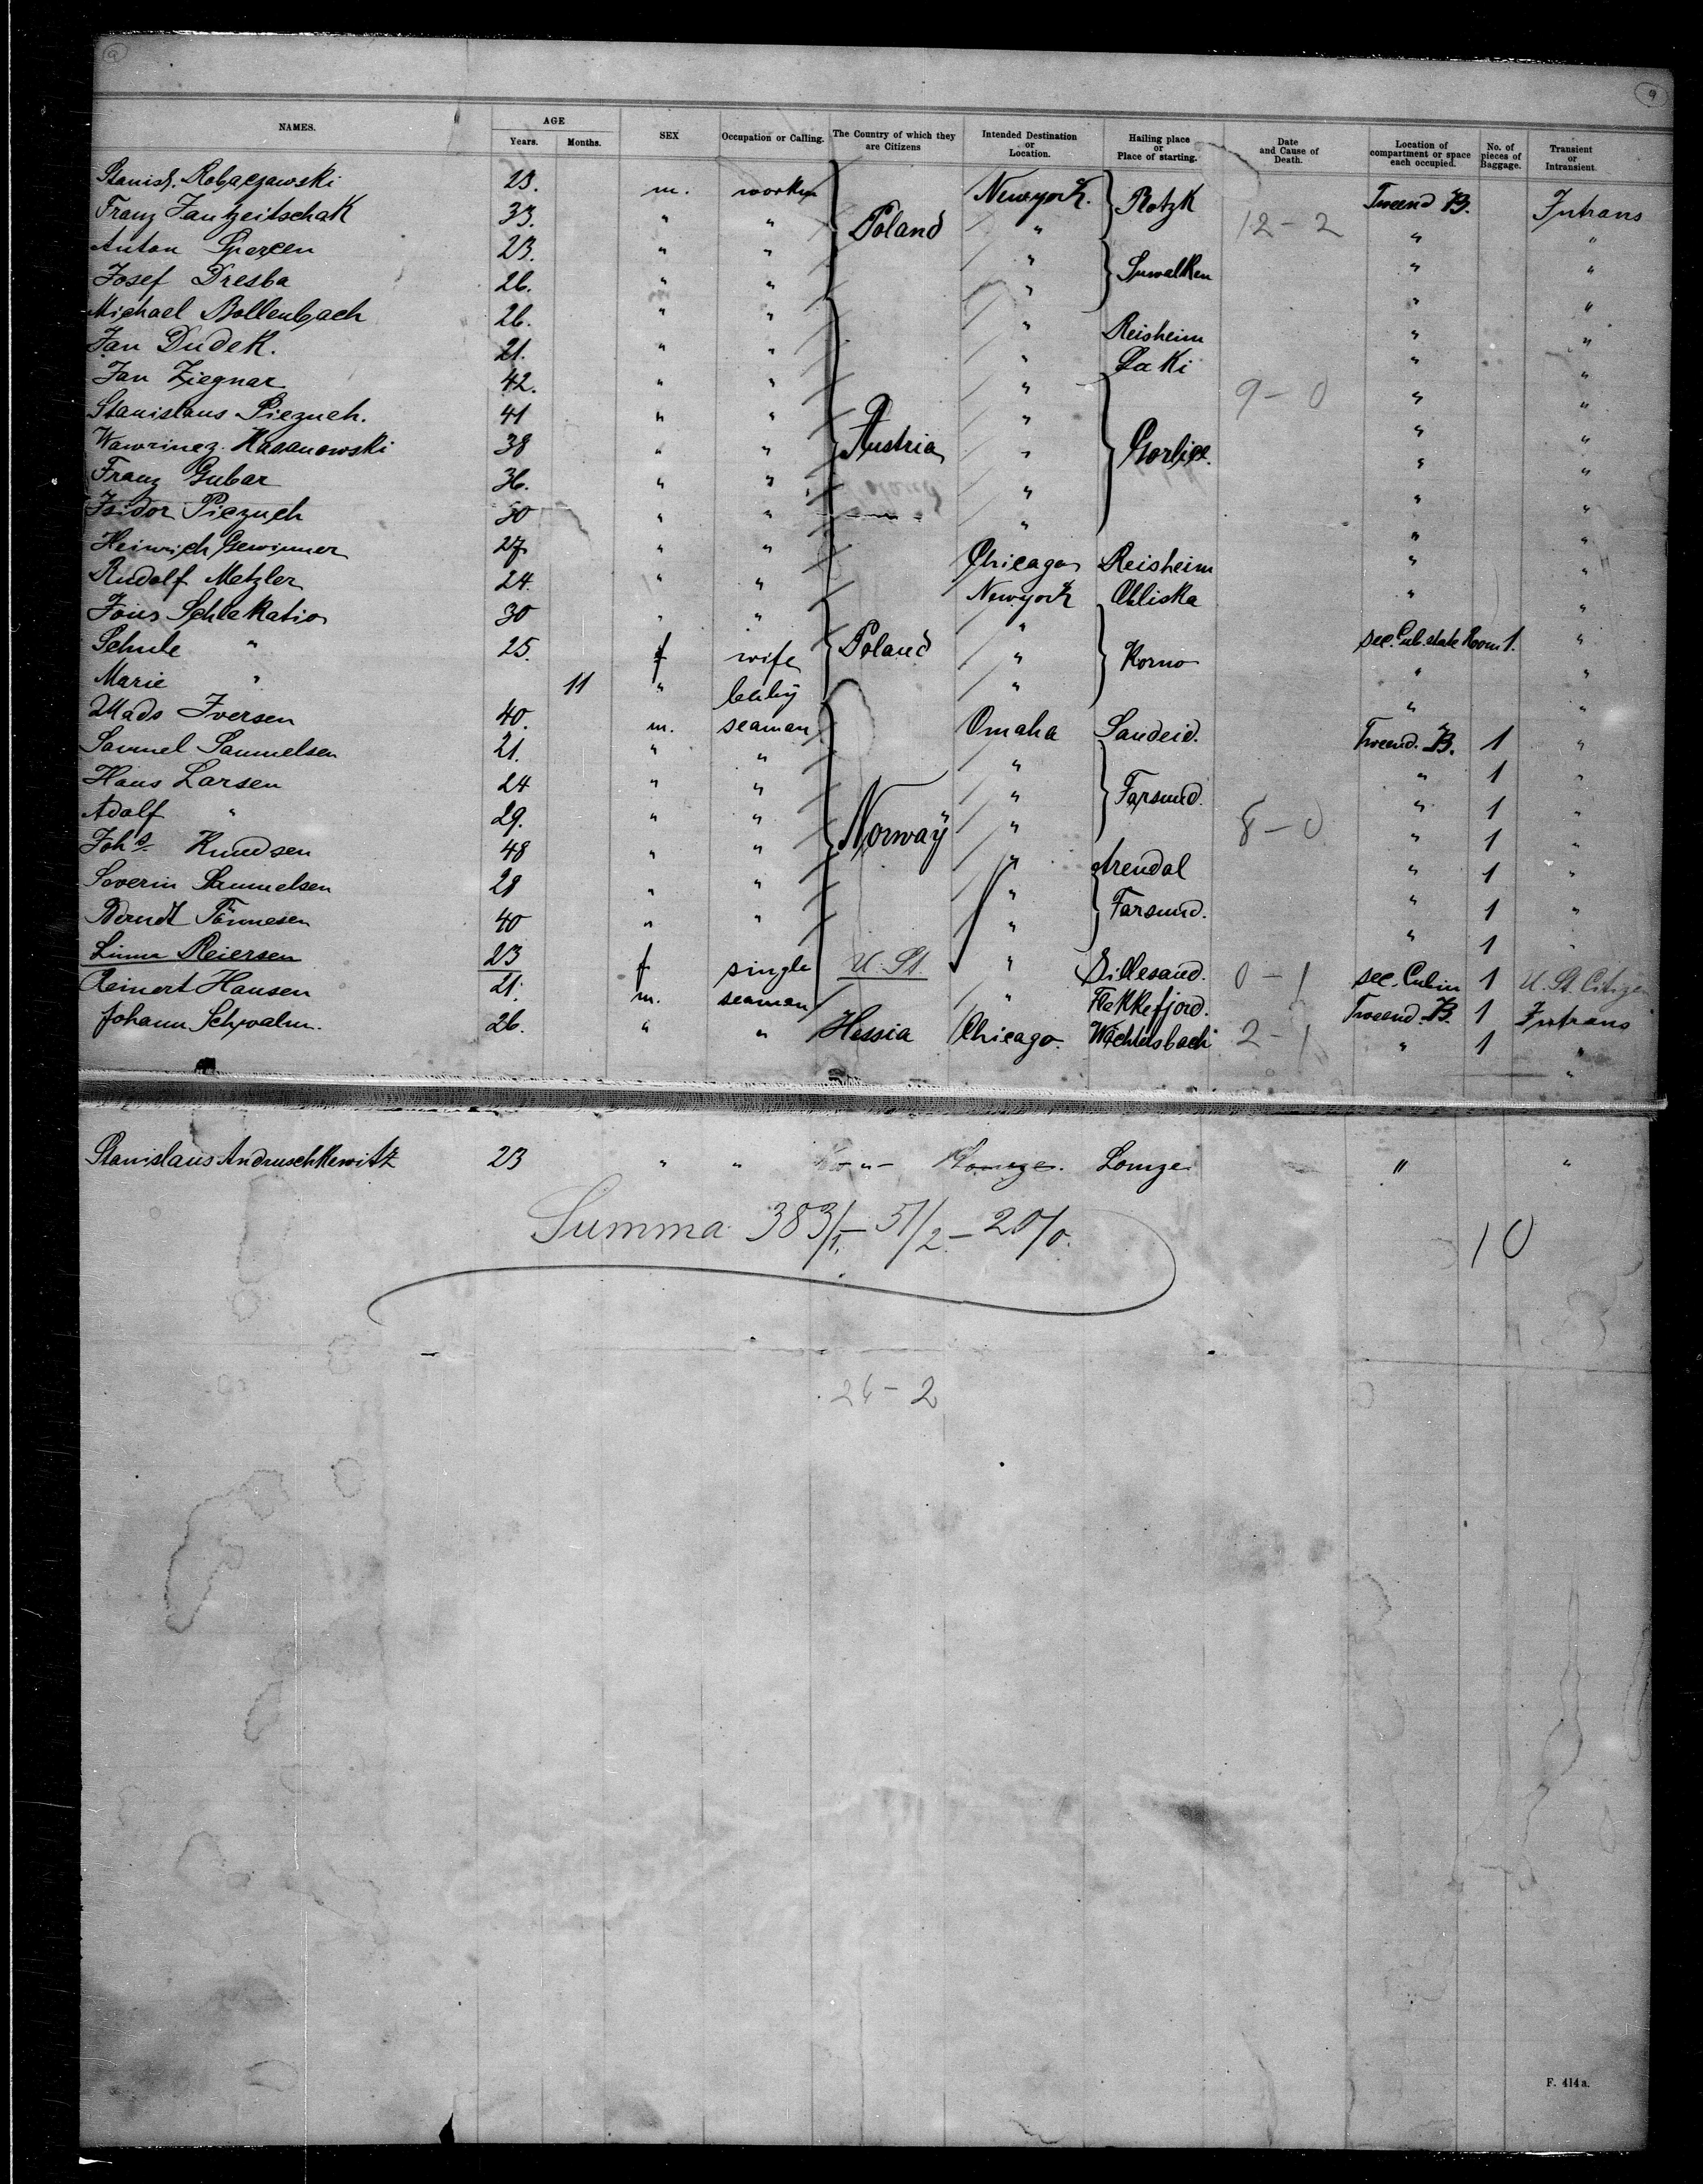 9 9
NAMES. AGE Years. Months. SEX Occupation or Calling. The Country of which they are Citizens Intended Destination or Location. Hailing place or Place of starting. Date and Cause of Death. Location of compartment or space each occupied. No. of pieces of Baggage. Transient or Intransient.
Stanisl. Robaczawski 23. m. worker Poland Newyork. Rotzk Tweend B. Intrans
Franz Jantzeitschak 33. " " " 12-2 " "
Anton 23. " " " Suwalken " "
Josef Dresba 26. " " " " "
Michael Bollenbach 26. " " Austria " Reisheim " "
Jan Dudek. 21. " " " Laki " "
Jan Ziegnar 42. " " " Gorlice. 9-0 " "
Stanislaus Piezuch. 41 " " " " "
Wawrincz. Kasanowski 38 " " " " "
Franz Gubar 36. " " " " "
Isidor Piezuch 30 " " " " "
Heinrich Gewinner 27 " " Chicago Reisheim " "
Rudolf Metzler 24. " " Newyork Chliska " "
Schlekatio 30 " " Poland " Korno sec. Cab. state Room 1. "
Schule " 25. f wife " " "
Marie " 11 " baby " " "
Mads Iversen 40. m. seaman Norway Omaha Sandeid. Tweend. B. 1 "
Samuel Samuelsen 21. " " " Farsund. " 1 "
Hans Larsen 24 " " " " 1 "
Adolf " 29. " " " 8-0 " 1 "
Johs Knudsen 48 " " " Arendal " 1 "
Severin Samuelsen 28 " " " Farsund. " 1 "
Berndt Tönnesen 40 " " " " 1 "
Reiersen 23 f single U. St. " Lillesand. 0-1 sec. Cabin 1 U. St. Citizen
Reinert Hansen 21. m. seaman " Flekkefjord. Tweend. B. 1 Intrans
Johann Schwalm. 26. " " Hessia Chicago. Wächtersbach 2-1 " 1 "
Stanislaus Andruschkewitz 23 " " - " - Lomze. Lomze " "
Summa 383/1. - 51/2 - 20/0. 10
26-2
F. 414a.